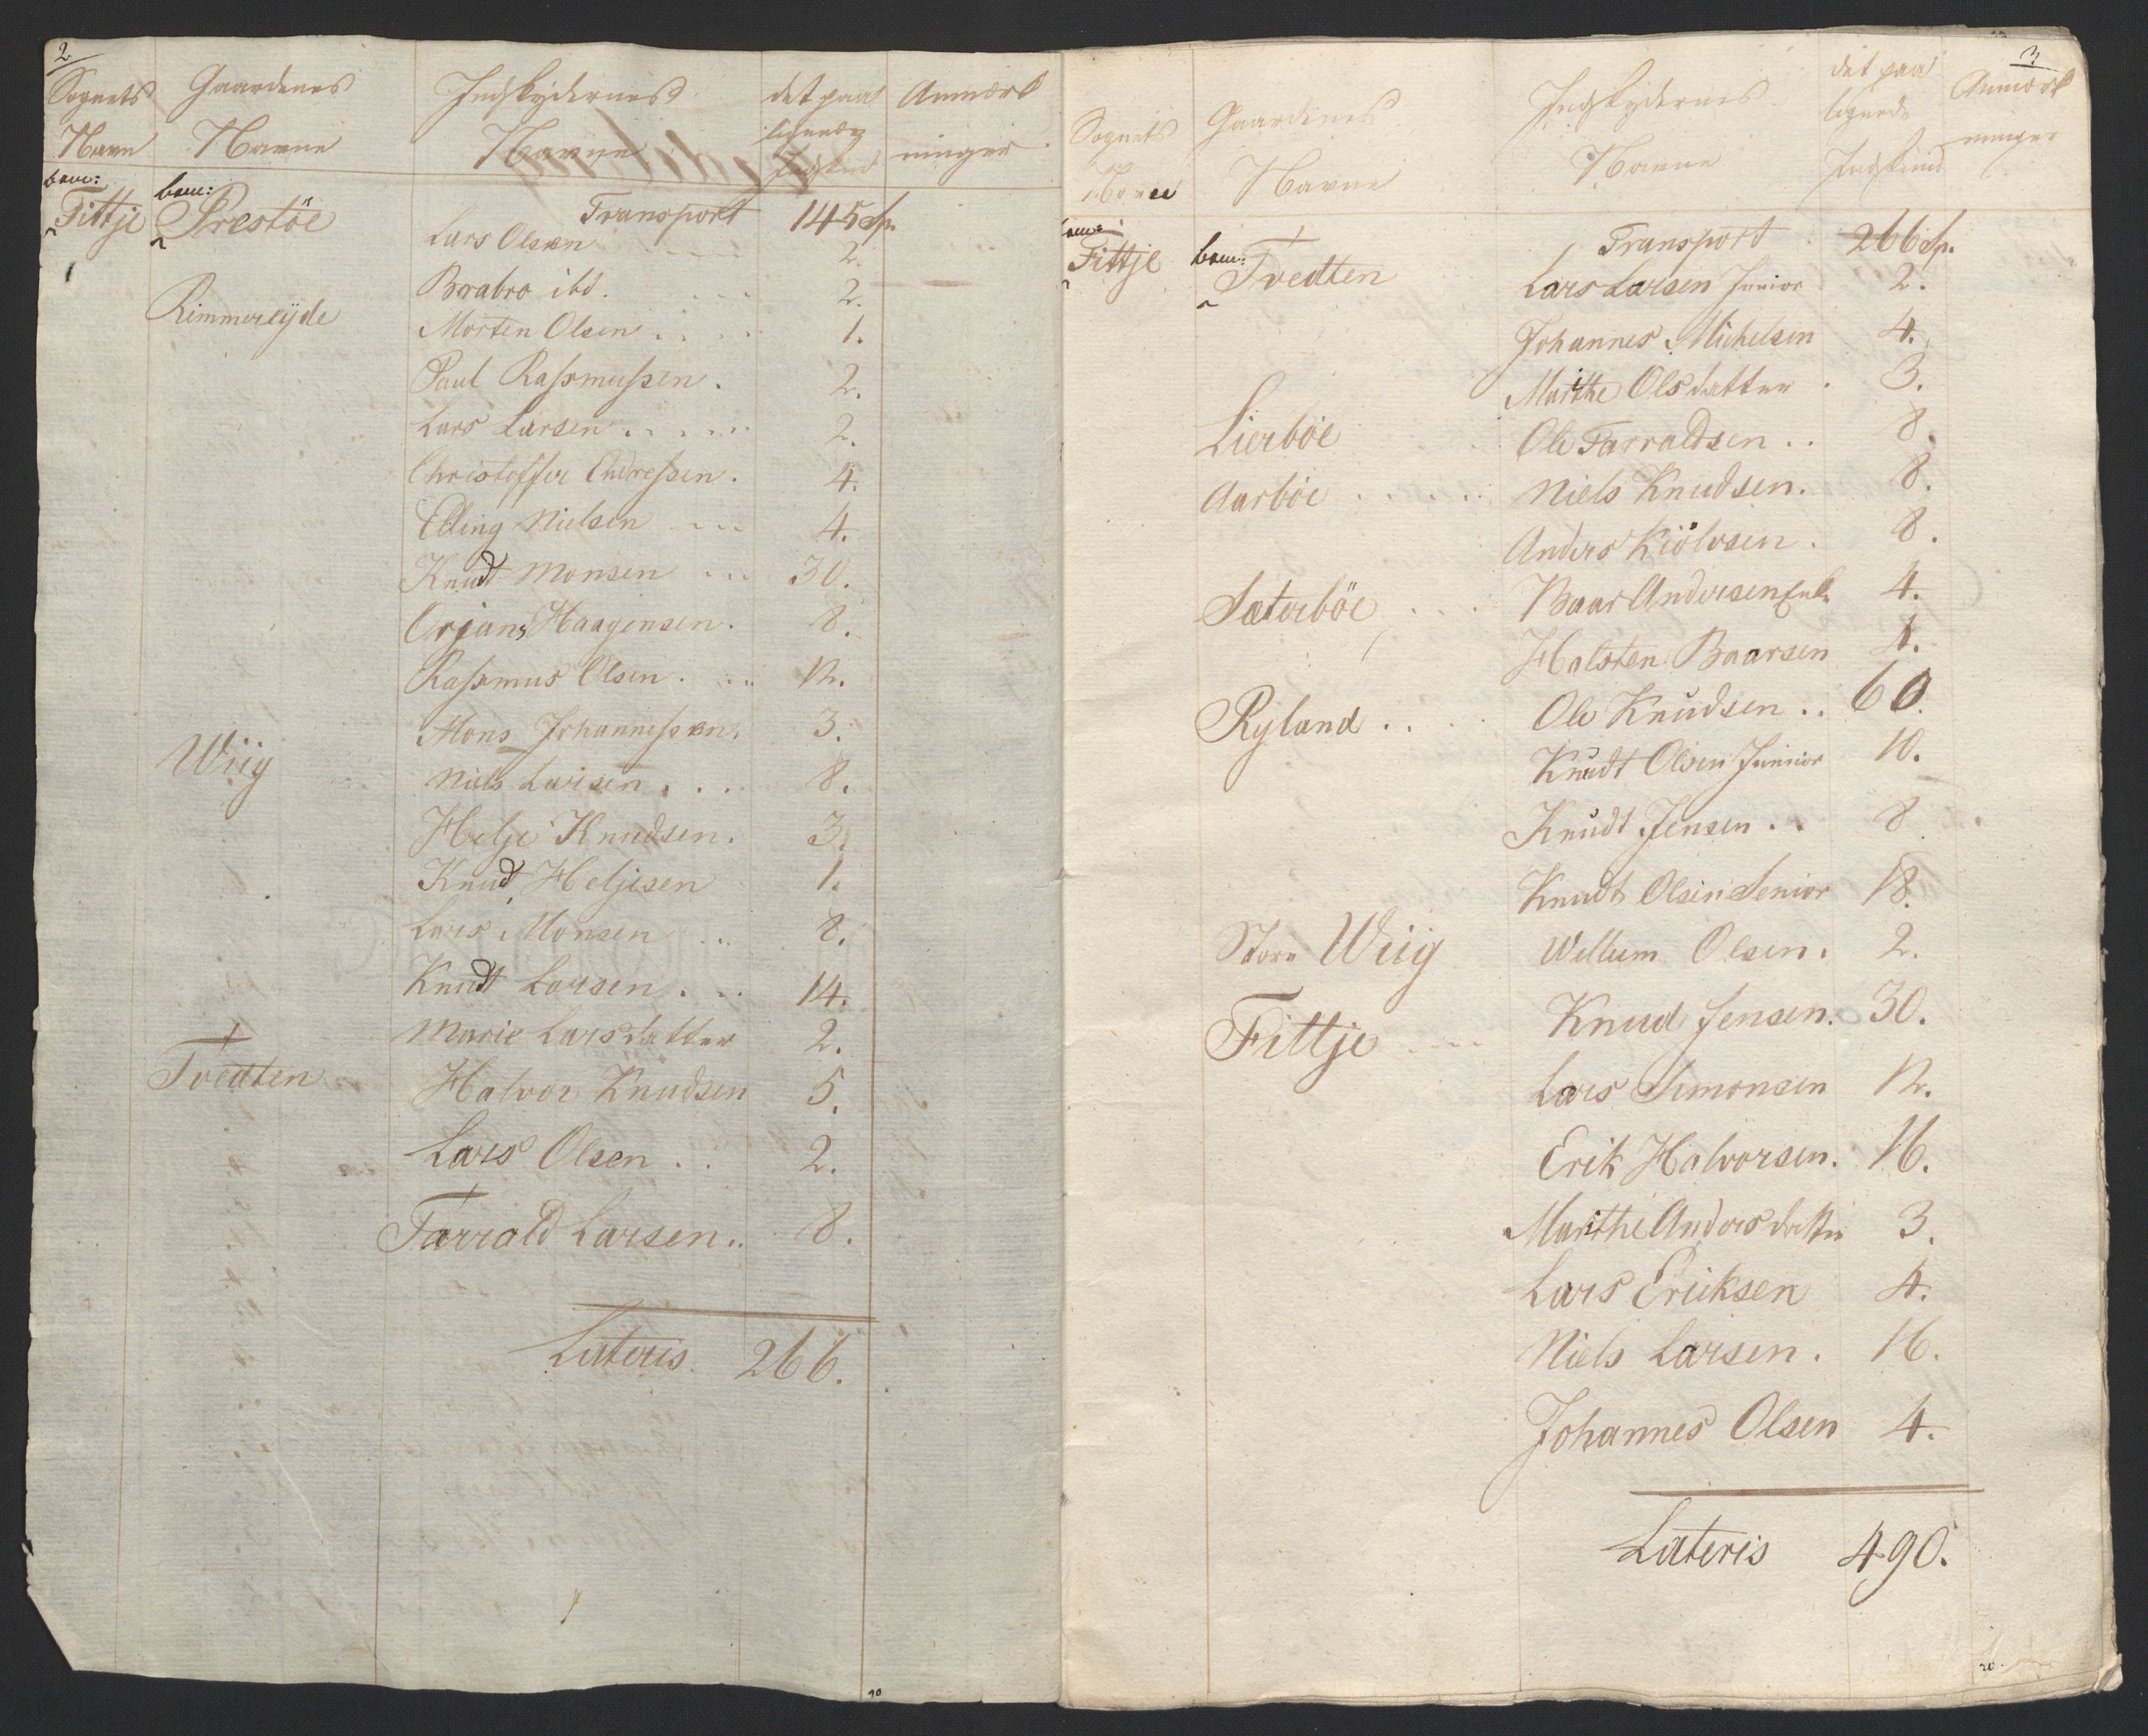 2
Sognets Gaardenes Indskydernes det paa Anmærk
Navn Navne Navne lignede ninger
Indskud
bem: bem:
Fittje Prestöe Transport 145 Sp.
Lars Olsen 2.
Baabro ibd. 2.
Rimmereyde Morten Olsen 1.
Paul Rasmussen 2.
Lars Larsen 2.
Christoffer Endresen 4.
Elling Nielsen 4.
Knudt Monsen 30.
Orjans Haagensen 8.
Rasmus Olsen 12.
Mons Johannessen 3.
Wiig Niels Larsen 8.
Helje Knudsen 3.
Knud Heljesen 1.
Lars Monsen 8.
Knudt Larsen 14.
Marie Larsdatter 2.
Tvedten Halvor Knudsen 5.
Lars Olsen 2.
Tarrald Larsen 8.
Lateris 266.
3
Sognets Gaardenes Indskydernes det paa Anmærk
Navn Navne Navne lignede ninger
Indskud
bem: bem:
Fittje Tvedten Transport 266 Sp.
Lars Larsen Junior 2.
Johannes Michelsen 4.
Marthe Olsdatter 3.
Lierböe Ole Tarraldsen 8.
Aarböe Niels Knudsen 8.
Anders Kiölvsen 8.
Sæterböe Baar Andersen Enke 4.
Halsten Baarsen 4.
Ryland Ole Knudsen 60.
Knudt Olsen Junior 10.
Knudt Jensen 8
Knudt Olsen Senior 18.
Store Wiig Wellum Olsen 2.
Fittje Knud Jensen 30.
Lars Simonsen 12.
Erik Halvorsen 16.
Marthe Andersdatter 3.
Lars Ericksen 4.
Niels Larsen 16.
Johannes Olsen 4.
Lateris 490.